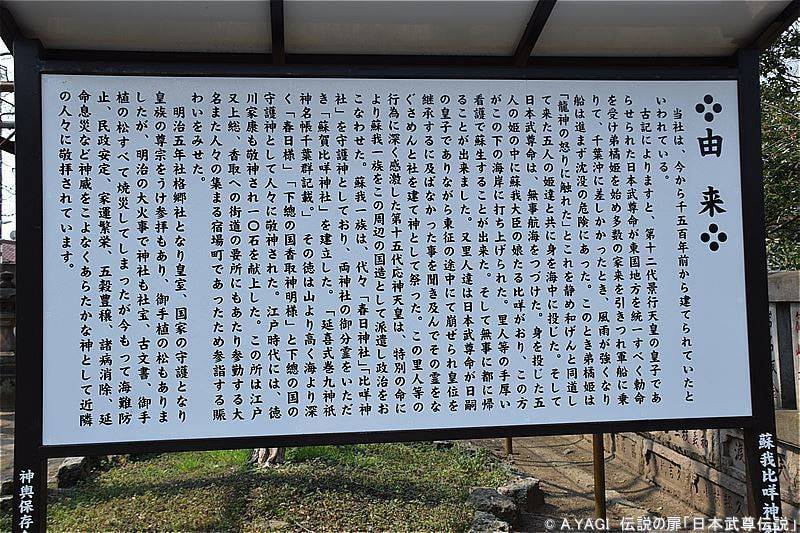 由来
当社は、今から千五百年前から建てられていたと
いわれている。
古記によりますと、第十二代景行天皇の皇子であ
らせられた日本武尊が東国地方を統一すべく勅命
を受け弟橘姫を始め多数の家来を引きつれ軍船に乗
りて、千葉沖に差しかかったとき、風雨が強くなり
船は進まず沈没の危険にあった。このとき弟橘姫は
「龍神の怒りに触れた」とこれを静め和げんと同道し
て来た五人の姫達と共に身を海中に投じた。そして
日本武尊は、無事航海をつづけた。身を投じた五
人の姫の中に蘇我大臣の娘たる比咩がおり、この方
がこの下の海岸に打ち上げられた。里人等の手厚い
看護で蘇生することが出来た。そして無事に都に帰
ることが出来ました。又里人達は日本武尊命が日嗣
の皇子でありながら東征の途中にて崩ぜられ皇位を
継承するに及ばなかった事を聞き及んでその霊をな
ぐさめんと社を建て神として祭った。この里人等の
行為に深く感激した第十五代応神天皇は、特別の命に
より蘇我一族をこの周辺の国造として派遣し政治をお
こなわせた。蘇我一族は、代々「春日神社」「比咩神
社」を守護神としており、両神社の御分霊をいただ
き「蘇賀比咩神社」を建立した。「延喜式巻九神祇
神名帳千葉群記載」。その徳は山より高く海より深
く「春日様」「下總の国香取神明様」と下總の国の
守護神として人々に敬神された。江戸時代には、徳
川家康も敬神され一〇石を献上した。この所は江戸
又上総、香取への街道の要所にもあたり参勤する大
名また人々の集まる宿場町であったため参詣する賑
わいをみせた。
明治五年社格郷社となり皇室、国家の守護となり
皇族の尊宗をうけ参拝もあり、御手植の松もありま
したが、明治の大火事で神社も社宝、古文書、御手
植の松すべて焼災してしまったが今もって海難防
止、民政安定、家運繁栄、五穀豊穣、諸病消除、延
命息災など神威をこよなくあらたかな神として近隣
の人々に敬拝されています。
蘇我比咩神社
神輿保存会
© A.YAGI 伝説の扉「日本武尊伝説」